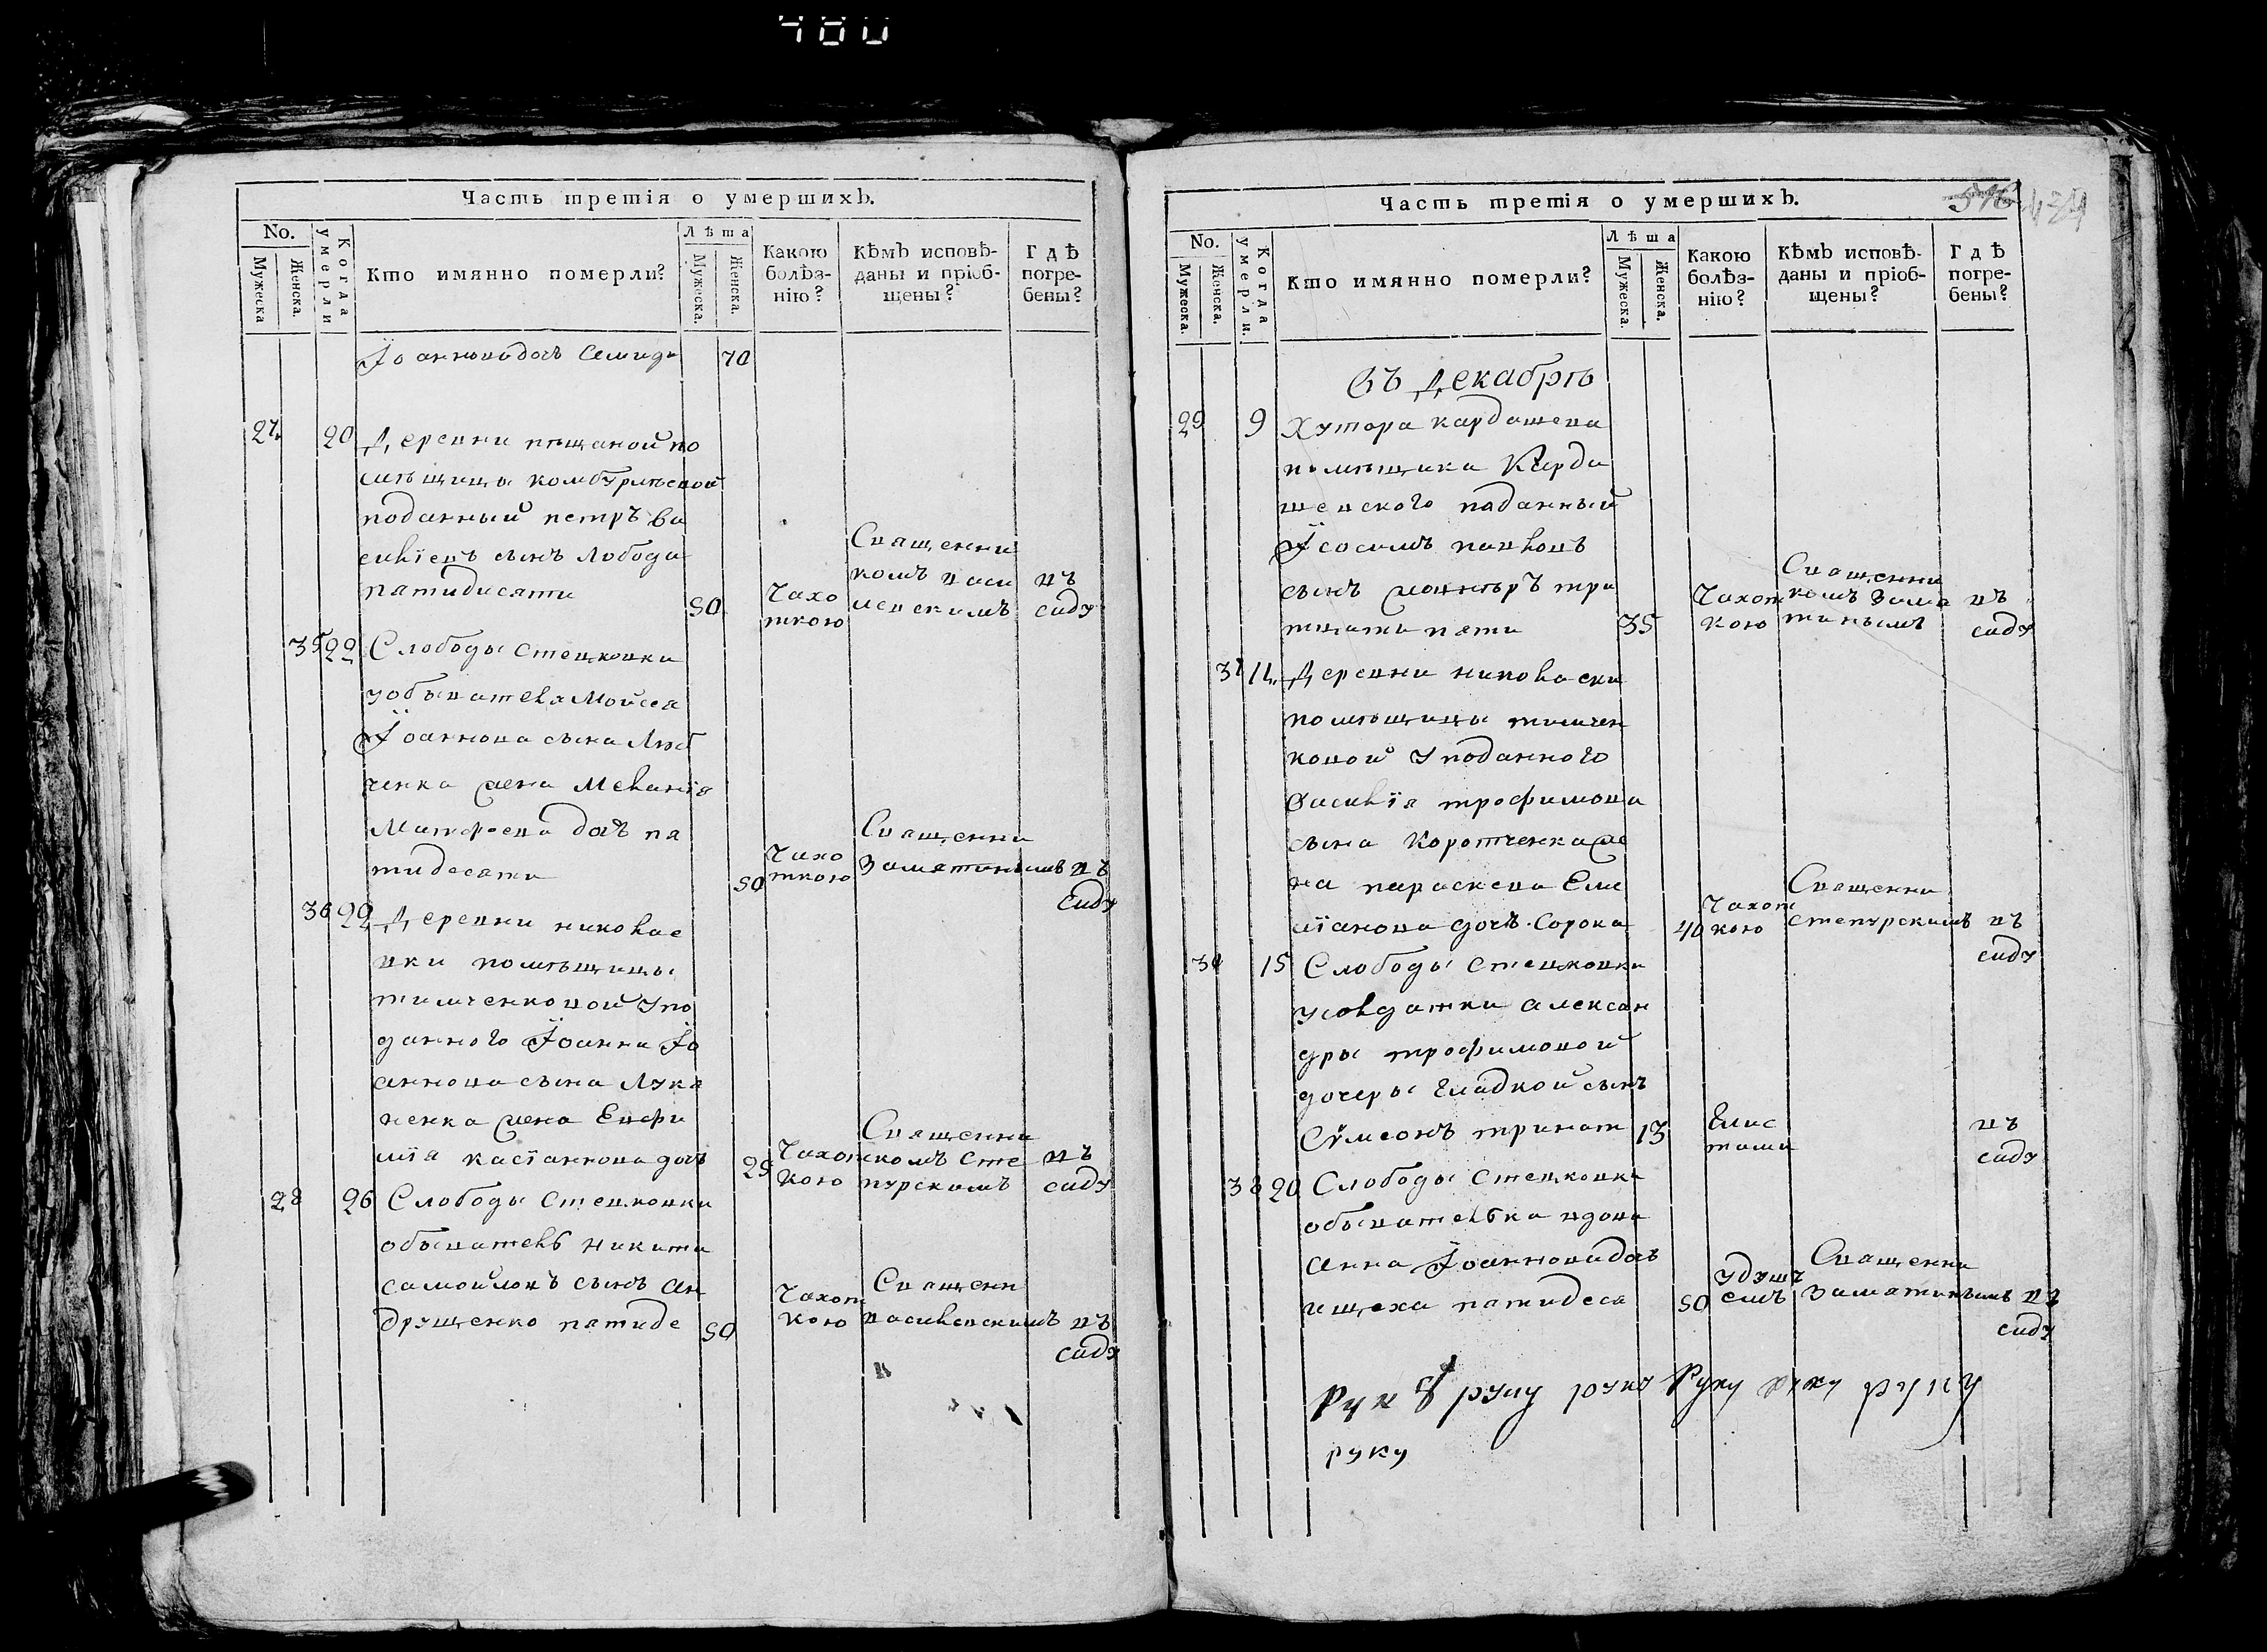 480
Часть третія о умершихъ.
No. Мужеска Женска. Когда умерли Кто имянно померли? Лѣта Мужеска. Женска. Какою болѣзнію? Кѣмъ исповѣданы и пріобщены? Гдѣ погребены?
Іоаннова дочь Семидя 70
27 20 Деревни пещаной по
мѣщицы комбурлѣевой
поданный петръ ва
силіевъ сынъ Лобода
пятидисяти 50 Чахо
ткою Священни
комъ васи
левскимъ въ
саду
35 22 Слободы Стецковки
уобывателя Мойсея
Іоаннова сына Люб
ченка жена Меланія
Матфеева дочъ пя
тидесяти 50 Чахо
ткою Священни
Замятинымъ въ
саду
36 22 Деревни николае
вки помѣщицы
тимченковой упо
данного Іоанна Іо
аннова сына Лука
ненка жена Евфи
мія касіаннова дочъ 25 Чахот
кою Священни
комъ Сте
пурскимъ въ
саду
28 26 Слободы Стецковки
обыватель Никита
самойловъ сынъ Ан
друщенко пятиде 50 Чахот
кою Священн
василевскимъ въ
саду
Часть третія о умершихъ.
516 474
No. Мужеска. Женска. Когда умерли. Кто имянно померли? Лѣта Мужеска. Женска. Какою болѣзнію? Кѣмъ исповѣданы и пріобщены? Гдѣ погребены?
въ Декабрѣ
29 9 Хутора кардашева
помѣщика Карда
шевского поданный
Іосифъ павловъ
сынъ три
тцати пяти 35 Чахот
кою Священни
комъ Замя
тинымъ въ
саду
37 14 Деревни николаевки
помѣщицы тимчен
ковой уподанного
василія трофимова
сына Коротченка же
на параскева Еме
ліанова дочъ Сорока 40 Чахот
кою Священни
степурскимъ въ
саду
30 15 Слободы Стецковки
усолдатки алексан
дры трофимовой
дочеры Гладкой сынъ
Сѵмеонъ тринат 13 Глис
тами въ
саду
38 20 Слободы Стецковки
обывателька вдова
анна Іоаннова дочъ
пятидеся 50 удушъ
емъ Священни
Замятинымъ въ
саду
руку руку руку руку руку
руку